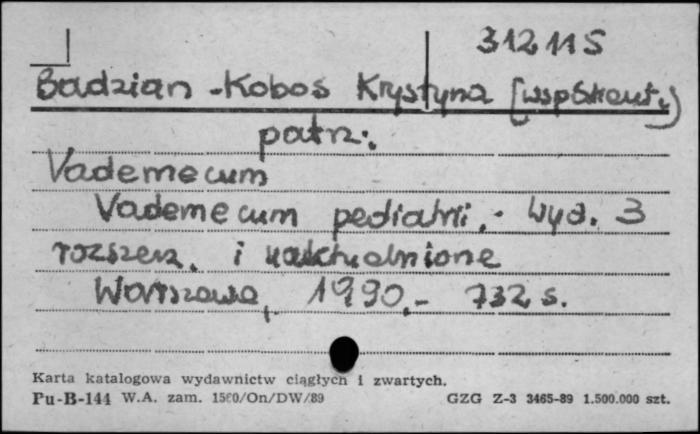 312115
Badzian-Kobos Krystyna [współaut.]
patrz:
Vademecum
Vademecum pediatrii. - Wyd. 3
rozszerz. i uaktualnione
Warszawa, 1990. - 732 s.
Karta katalogowa wydawnictw ciągłych i zwartych.
Pu-B-144 W.A. zam. 1560/On/DW/89 GZG Z-3 3465-89 1.500.000 szt.